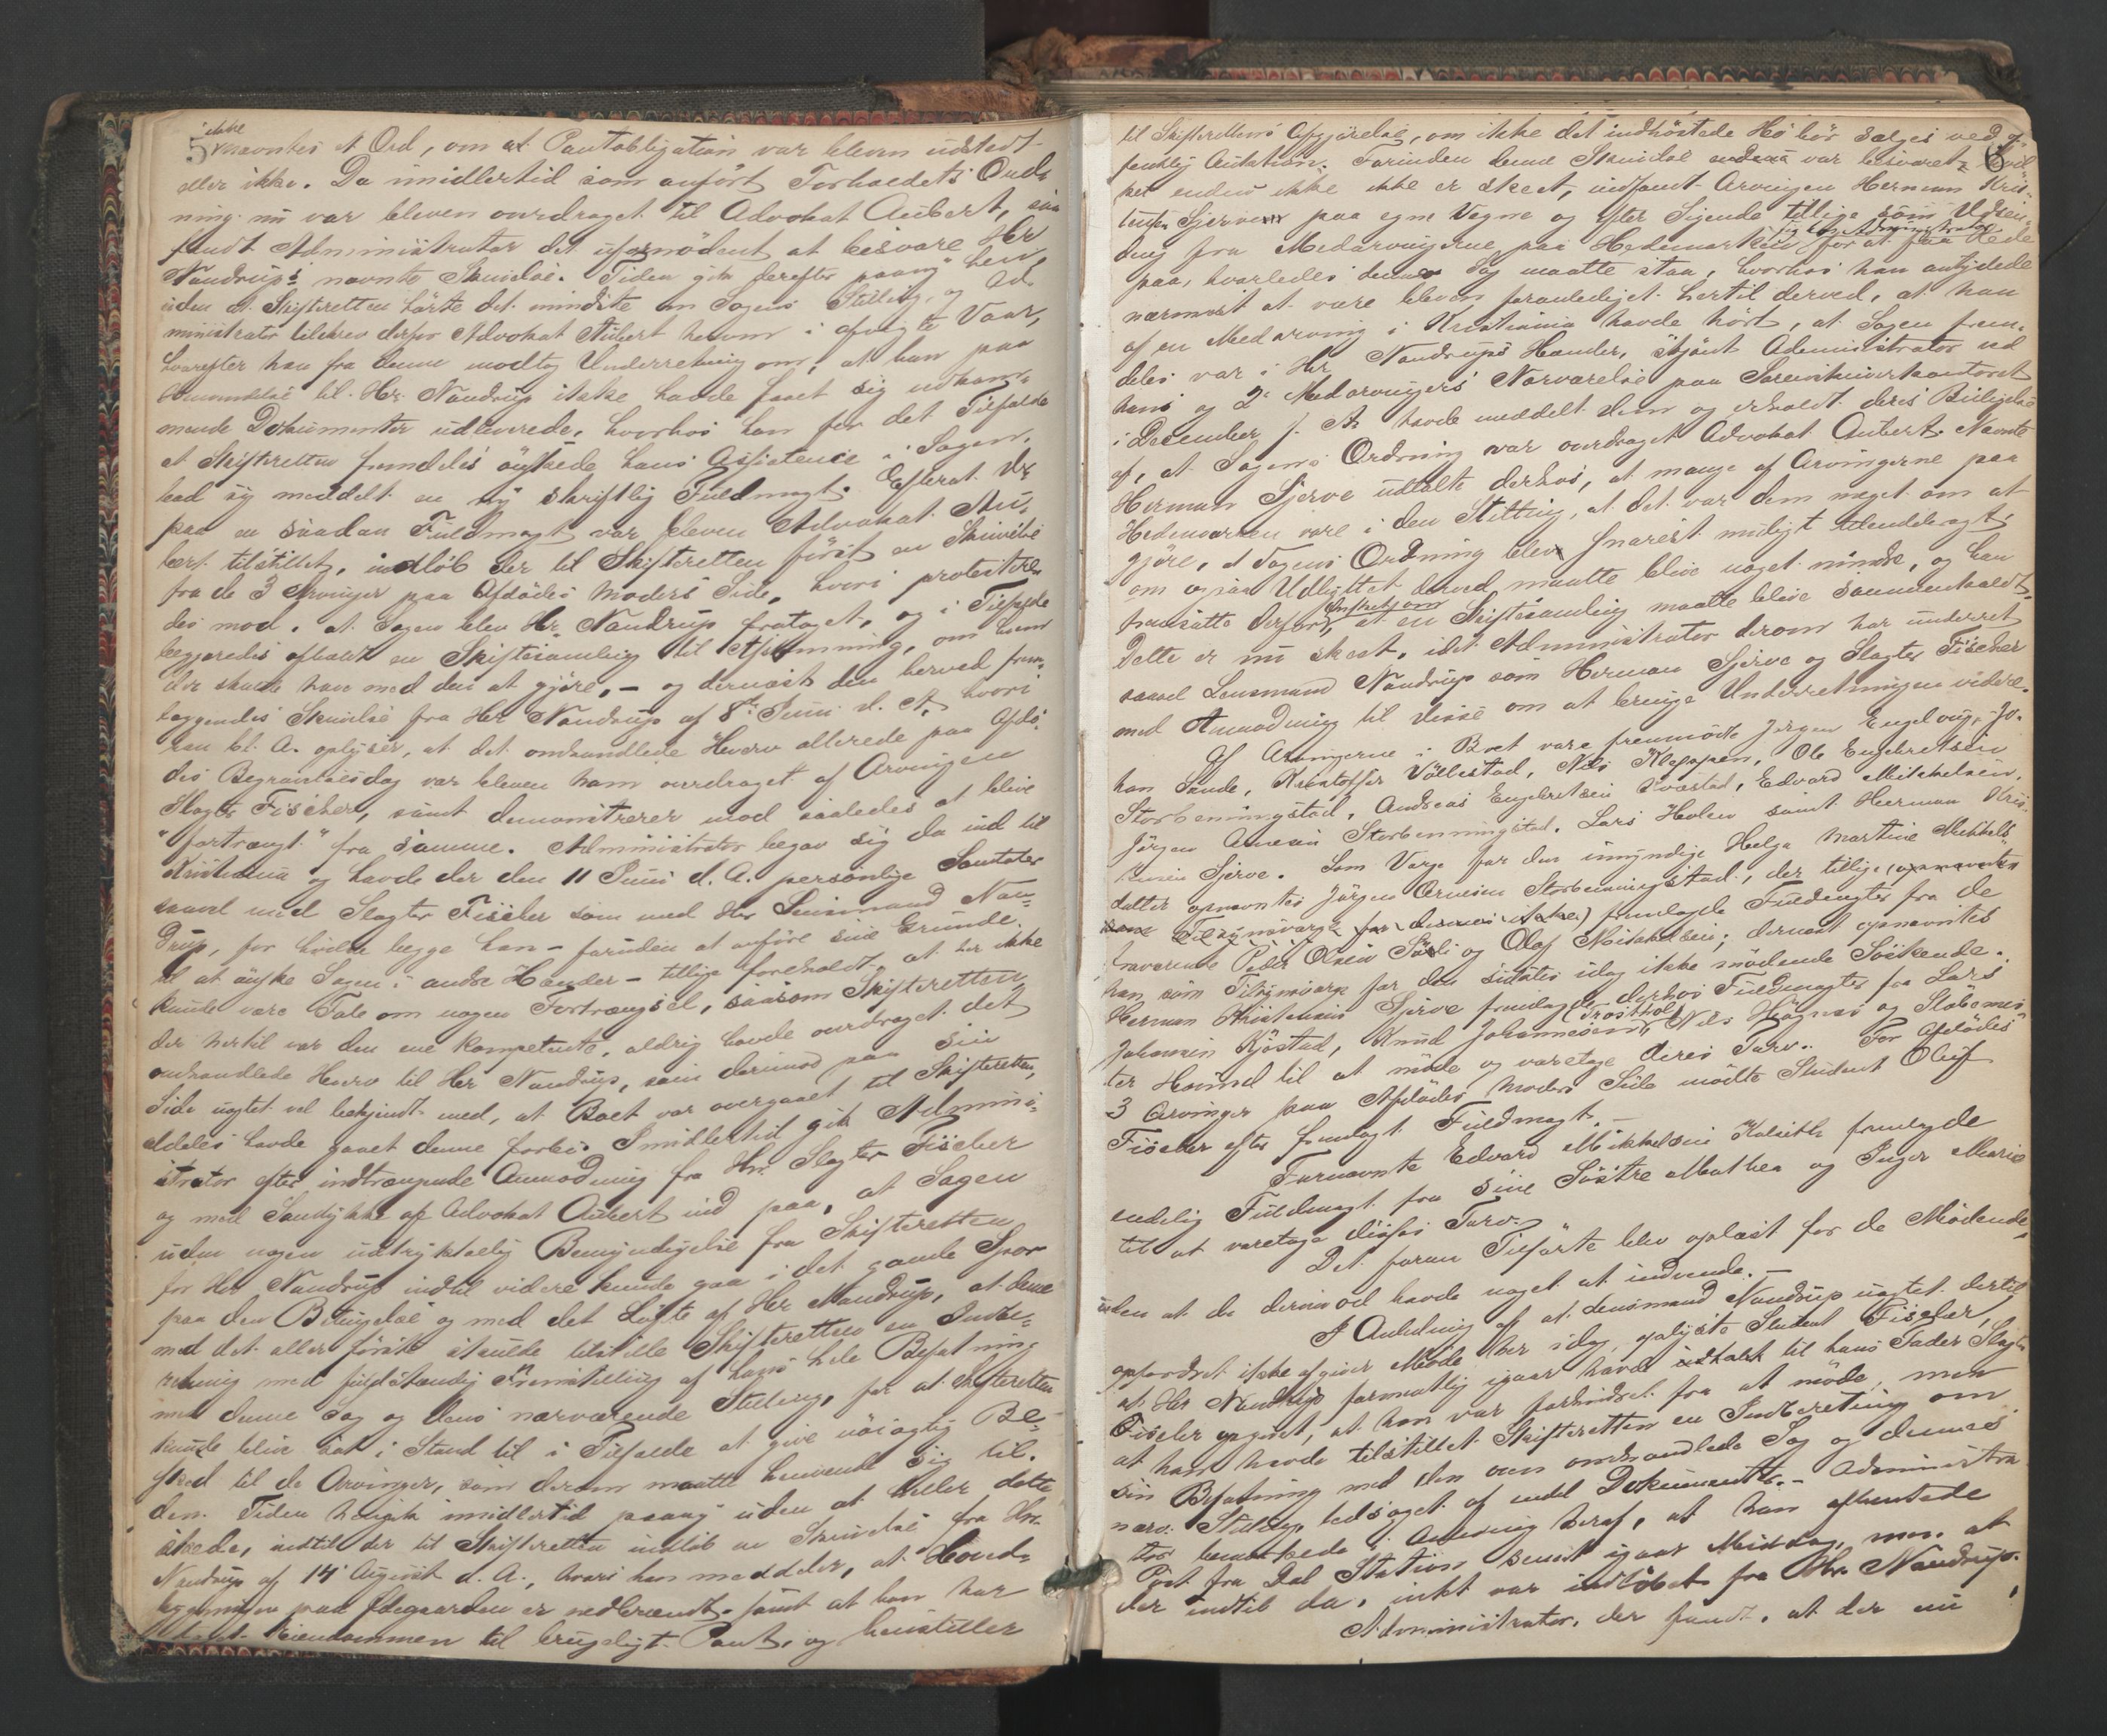 5
ikke
nævntes et Ord, om at Pantobligation var bleven udstedt
eller ikke. Da imidlertid som anført Forholdets Ord-
ning nu var bleven overdraget til Advokat Aubert,
fandt Administrator det ufornødent at besvare Hr
Naudrups nævnte Skrivelse. Tiden gik derefter paany hen,
uden at Skifteretten hørte det mindste om Sagens Stilling, og Ad-
ministrator tilskrev derfor Advokat Aubert herom i afvigte Vaar,
hvorefter han fra denne modtog Underretning om, at han paa
Henvendelse til Hr. Naudrup ikke havde faaet sig vedkom-
mende Dokumenter udleverede, hvorhos han for det Tilfælde
at Skifteretten fremdeles øyskede hans Assistence i Sagen,
bad sig meddelt en ny skriftlig Fuldmagt. Efterat der
paa en saadan Fuldmagt var bleven Advokat Au-
bert tilstillet, indløb der til Skifteretten først en Skrivelse
fra de 3 Arvinger paa Afdødes Moders Side, hvori protestere-
des mod, at Sagen blev Hr. Naudrup frataget, og i Tilfælde
begjæredes afholdt en Skiftesamling til Afstemning, om hvem
der skulde have med den at gjøre, – og dernæst den herved frem-
læggendes Skrivelse fra Hr Naudrup af 8de Juni d. A. hvori
han bl. A. oplyser, at det omhandlede Hverv allerede paa Afdø-
des Begravelsesdag var bleven ham overdraget af Arvingen
Slagter Fischer, samt demonstrerer mod saaledes at blive
"fortrængt" fra samme. Administrator begav sig da ind til
Kristiania og havde der den 11 Juni d. A. personlige Samtaler
saavel med Slagter Fischer som med Hr Lensmand Nau-
drup, for hvilke begge han – foruden at anføre sine Grunde
til at øyske Sagen i andre Hænder – tillige foreholdt, at der ikke
kunde være Tale om nogen Fortrængsel, saasom Skifteretten,
der hertil var den ene kompetente, aldrig havde overdraget det
omhandlede Hverv til Hr Naudrup, som derimod paa sin
Side uagtet vel bekjendt med, at Boet var overgaaet til Skifteretten,
aldeles havde gaaet denne forbi. Imidlertid gik Admini-
strator efter indtrængende Anmodning fra Hr. Slagter Fischer
og med Samtykke af Advokat Aubert ind paa, at Sagen
uden nogen udtrykkelig Bemyndigelse fra Skifteretten
for Hr Naudrup indtil videre kunde gaa i det gamle Spor
paa den Betingelse og med det Løfte af Hr Naudrup, at denne
med det aller første skulde tilstille Skifteretten en Indbe-
retning med fuldstændig Fremstilling af hans hele Befatning
med denne Sag og dens nærværende Stilling, for at Skifteretten
kunde blive sat i Stand til i Tilfælde at give nøiagtig Be-
sked til de Arvinger, som derom maatte henvende sig til
den. Tiden hengik imidlertid paany uden at heller dette
skede, indtil der til Skifteretten indløb en Skrivelse fra Hr.
Naudrup af 14 August d. A., hvori han meddeler, at Hoved-
bygningen paa Ødegaarden er nedbrændt, samt at han har
Eiendommen til brugeligt Pant, og henstiller
6
til Skifterettens Afgjørelse, om ikke det indhøstede Hø bør sælges ved of-
fentlig Auktion. Forinden denne Skrivelse endnu var besvaret, hvil-
ket endnu ikke ikke er skeet, indfandt Arvingen Herman Kris-
tensen Sjerve paa egne Vegne og efter Sigende tillige som Udsen-
sig hos Administrator
ding fra Medarvingerne paa Hedemarken for at faa Rede
paa, hvorledes denne Sag maatte staa, hvorhos han antydede
nærmest at være bleven foranlediget hertil derved, at han
af en Medarving i Kristiania havde hørt, at Sagen frem-
deles var i Hr Naudrups Hænder, skjønt Administrator ved
hans og 2 Medarvingers Nærværelse paa Sorenskriverkontoret
i December f. A. havde meddelt dem og erholdt deres Billigelse
af, at Sagens Ordning var overdraget Advokat Aubert. Nævnte
Herman Sjerve udtalte derhos, at mange af Arvingerne paa
Hedemarken vare i den Stilling, at det var dem meget om at
gjøre, at Sagens Ordning blev snarest muligt tilendebragt
om ogsaa Udbyttet derved maatte blive noget mindre, og han
Ønsket om
fremsatte derfor, at en Skiftesamling maatte blive sammenkaldt.
Dette er nu skeet, idet Administrator derom har underret
saavel Lensmand Naudrup som Herman Sjerve og Slagter Fischer
med Anmodning til disse om at bringe Underretningen videre.
Af Arvingerne i Boet vare fremmødt Jørgen Engelvug, Jo-
han Sande, Kristoffer Vollestad, Nils Kleppen, Ole Engebretsen
Storbenningstad, Andreas Engebretsen Kvæstad, Edvard Mikkelsen,
Jørgen Arnesen Storbenningstad, Lars Hovlen samt Herman Kris-
tensen Sjerve. Som Værge for den umyndige Helga Martine Mikkels-
datter opnævntes Jørgen Arnesen Storbenningstad, der tillige (opnævntes
som Tilsynsværge for dennes ikke) fremlagde Fuldmagter fra de
fraværende Peder Olsen Sørli og Olaf Mikkelsen; dernæst opnævntes
han som Tilsynsværge for den sidstes idag ikke mødende Søskende.
Herman Kristensen Sjerve fremlagde derhos Fuldmagter fra Lars
Trosthol
Johansen Kjøstad, Knud Johannesen, Nils Høgnes og Støbemes-
ter Hovind til at møde og varetage deres Tarv. For Afdødes
3 Arvinger paa Afdødes Moders Side mødte Student Oluf
Fischer efter fremlagt Fuldmagt. –
Fornævnte Edvard Mikkelsen fremlagde
endelig Fuldmagt fra sine Søstre Mathea og Inger Marie
til at varetage disses Tarv.
Det foran Tilførte blev oplæst for de Mødende
uden at de derimod havde noget at indvende. –
I Anledning af at Lensmand Naudrup uagtet dertil
opfordret ikke afgiver Møde her idag, oplyste Student Fischer,
at Hr Naudrup formentlig igaar havde udtalt til hans Fader Slagter
Fischer angivet, at han var forhindret fra at møde, men
at han havde tilstillet Skifteretten en Indberetning om
sin Befatning med den oven omhandlede Sag og dennes
nærv. Stilling, ledsaget af endel Dokumenter. – Administra
tor bemærkede i Anledning heraf, at han afhentede
Post fra Dal Station senest igaar Middag, men at
der indtil da, intet var indløbet fra Hr. Naudrup.
Administrator, der fandt, at der nu